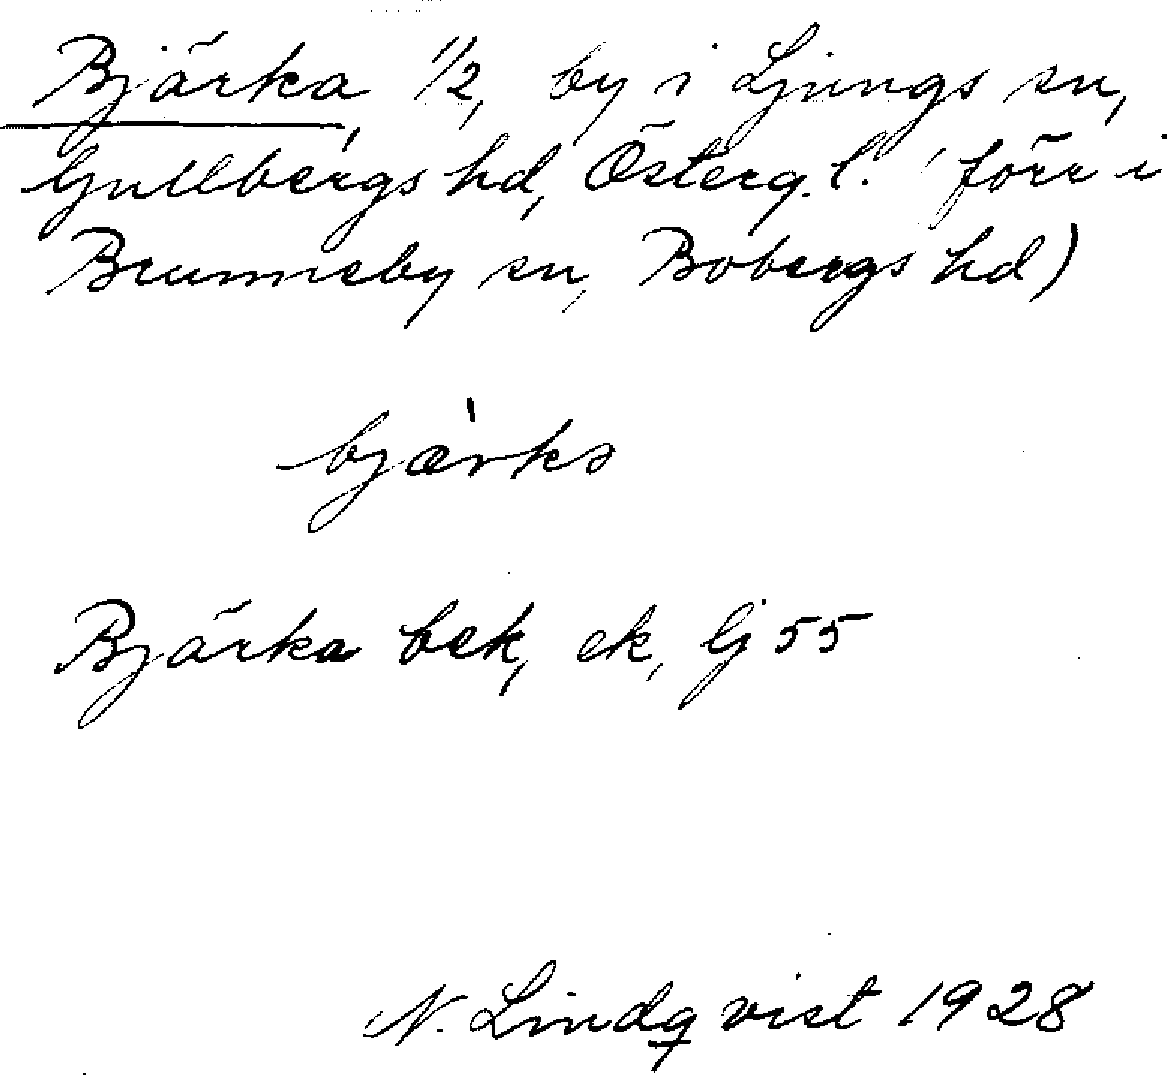 Bjärka 1/2, by i Ljungs sn,
Gullbergs hd, Österg. l. (förr i
Brunneby sn, Bobergs hd)
bjærks
Bjärka bek, ek, Gj 55
N. Lindqvist 1928